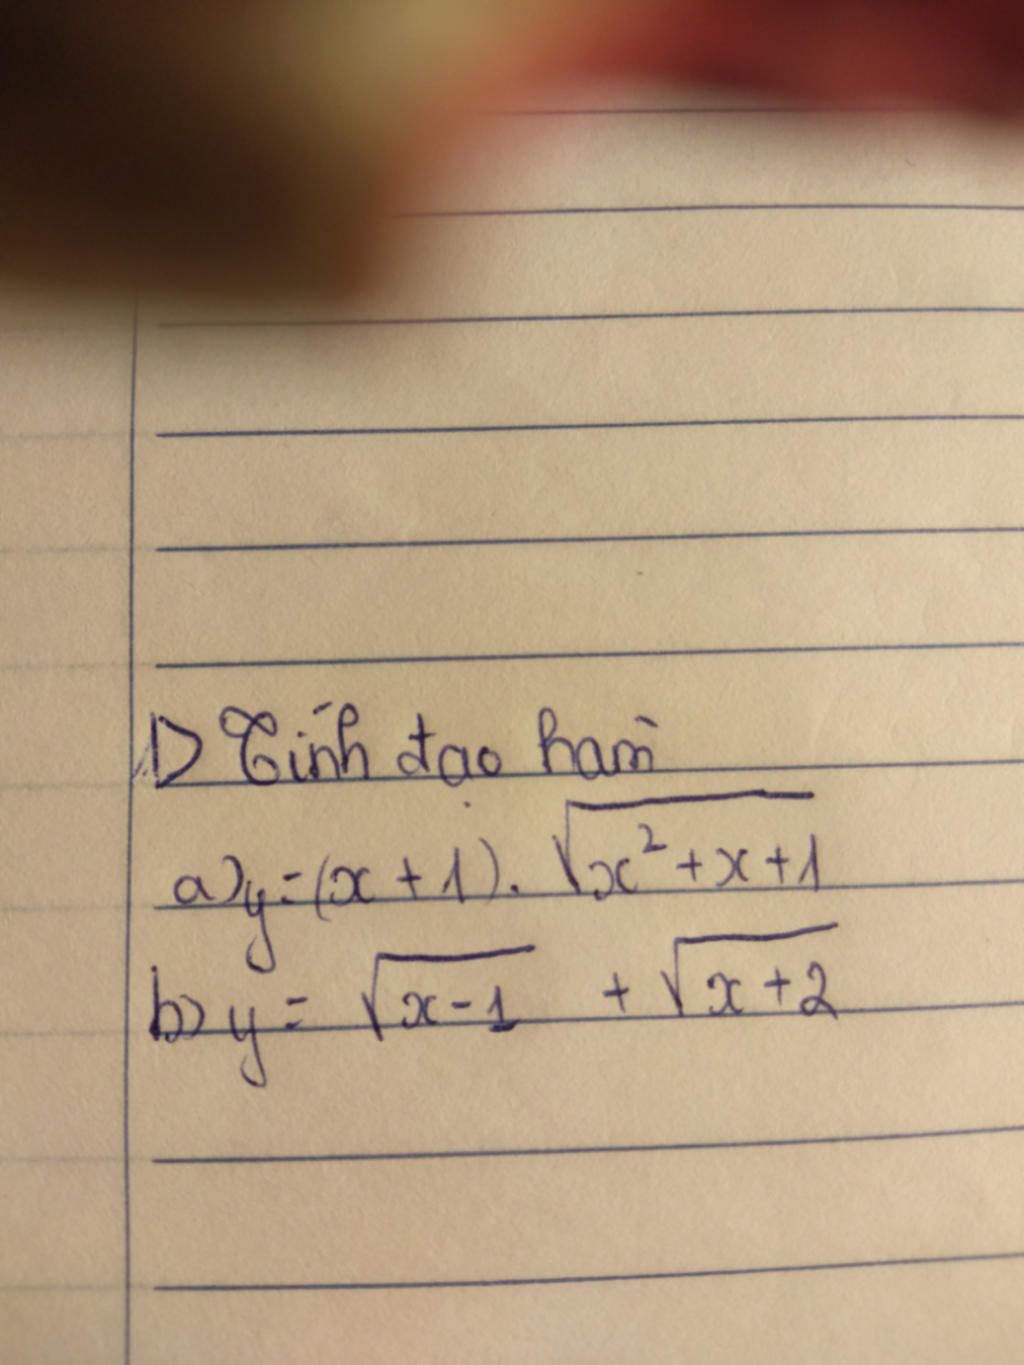 1) Tính đạo hàm
a) y = (x + 1). √(x² + x + 1)
b) y = √(x - 1) + √(x + 2)